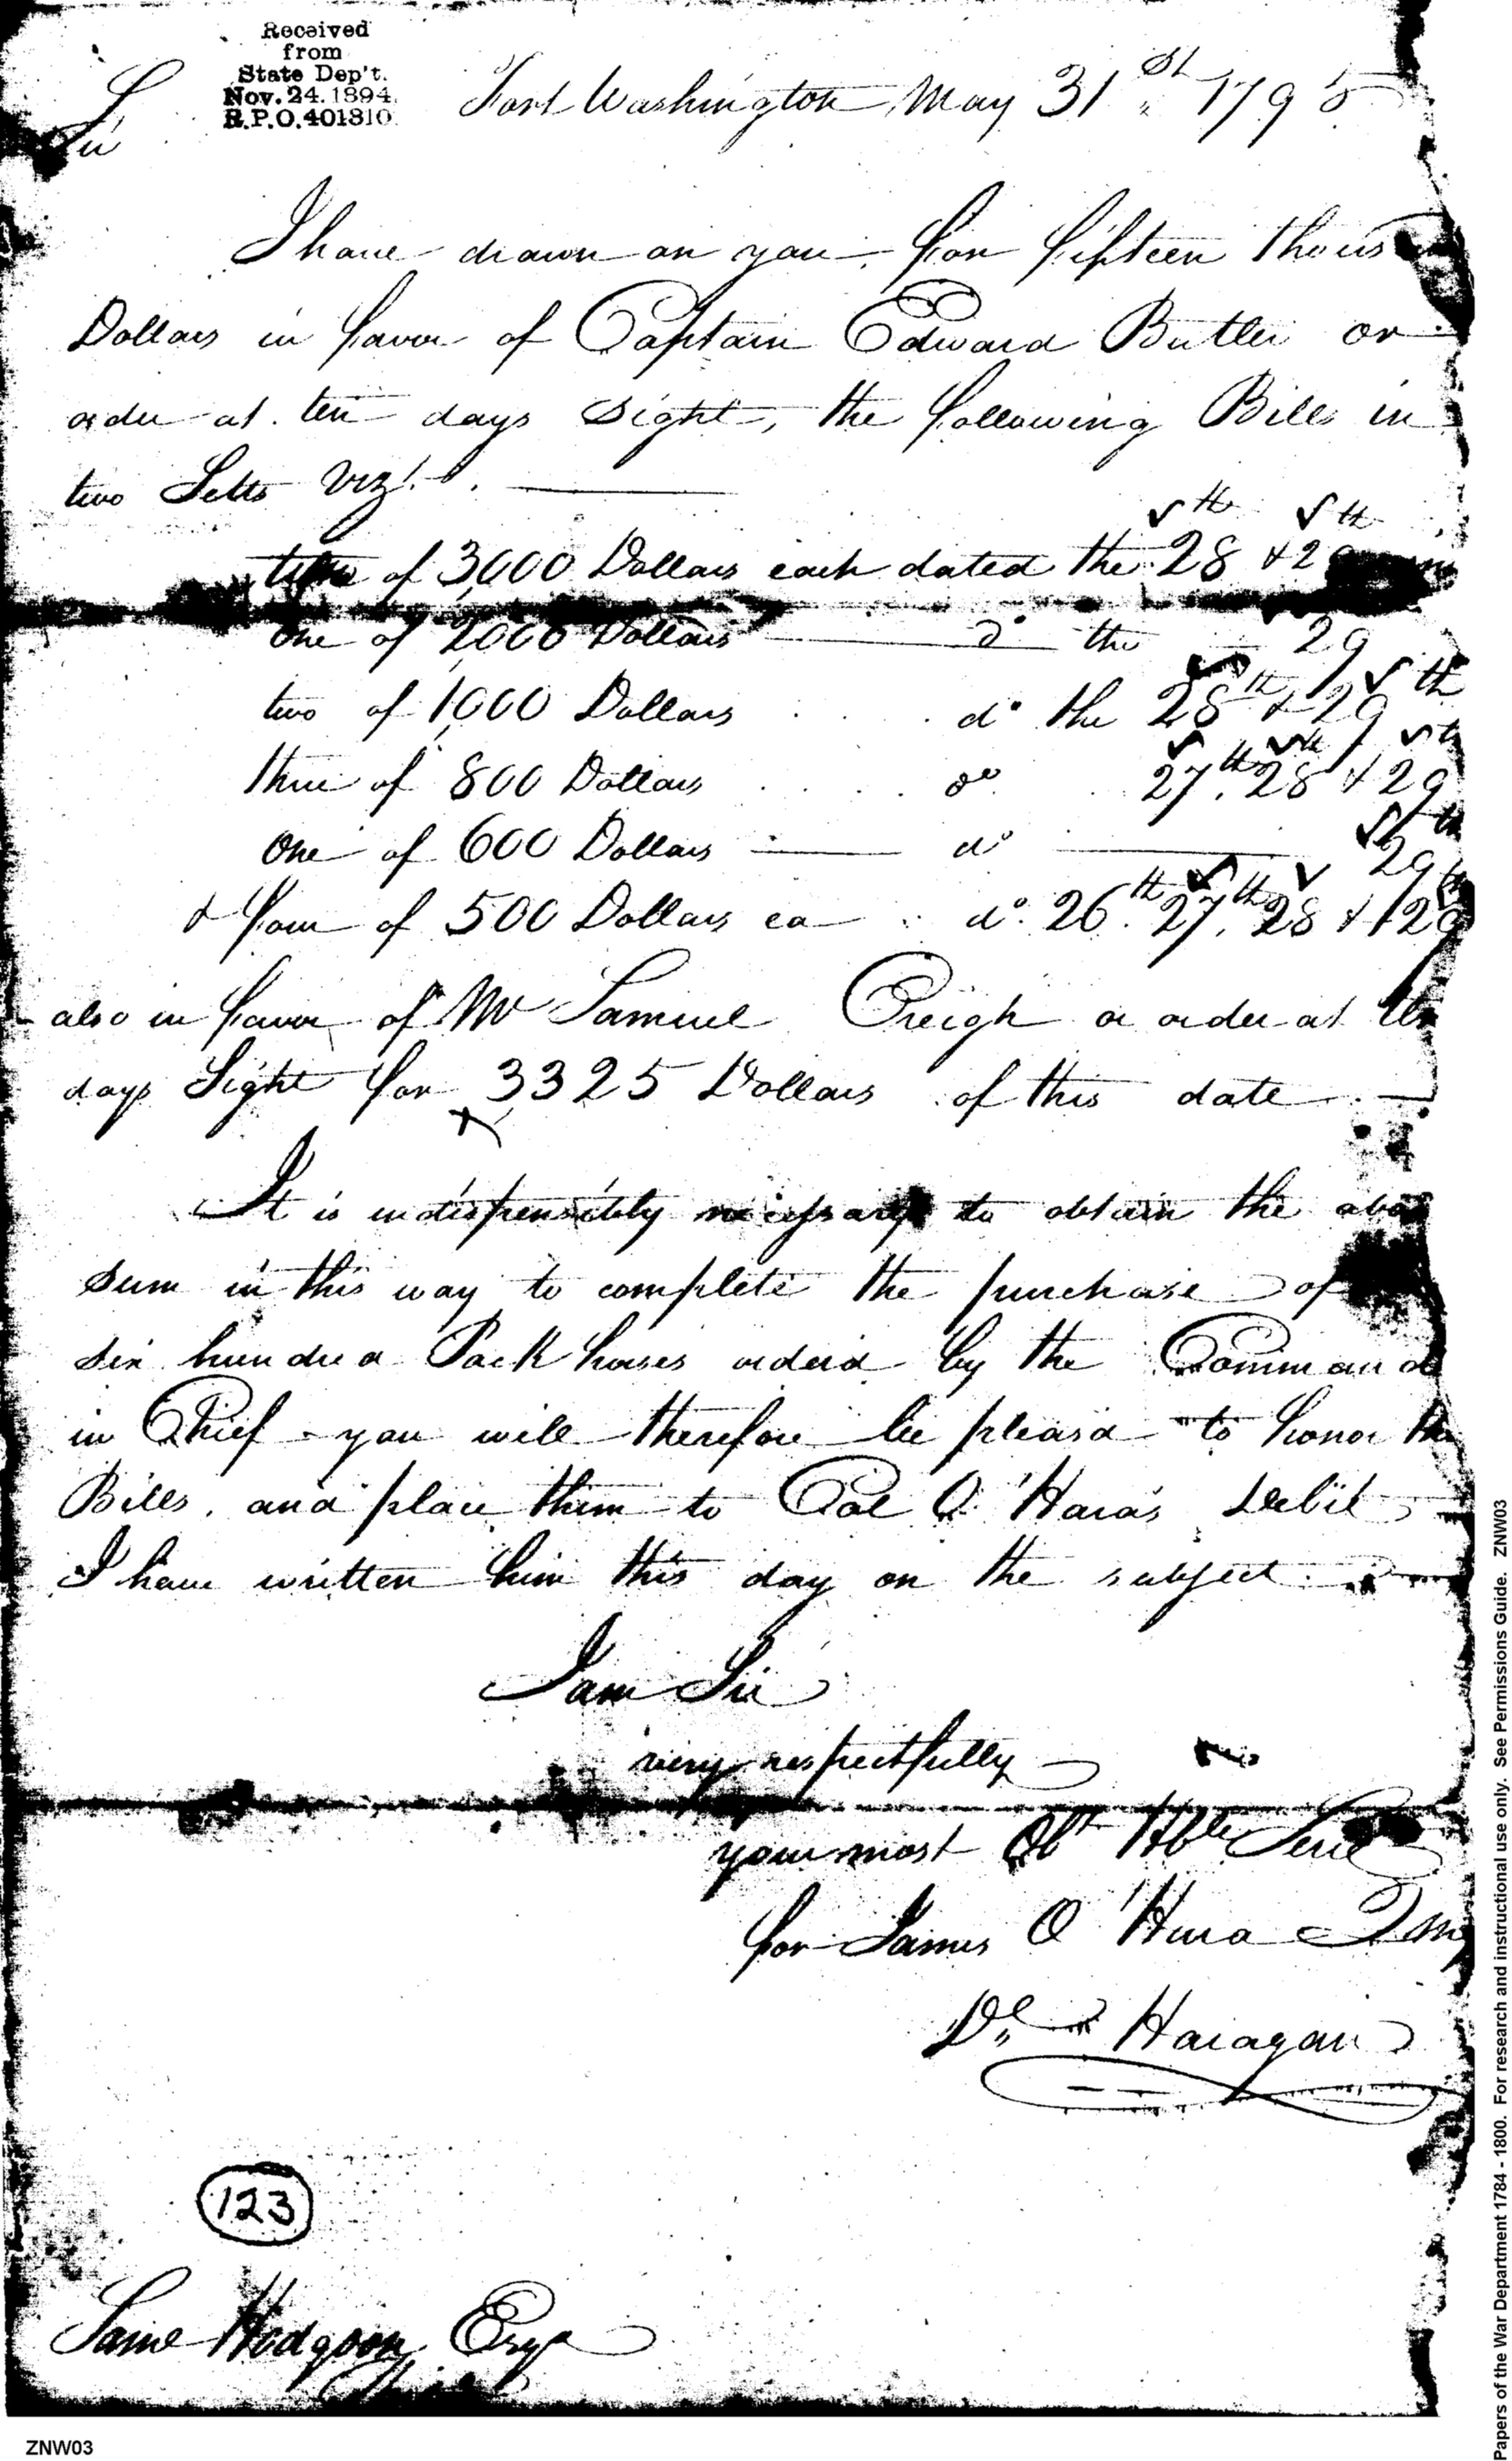 Received
from
State Dep't.
Nov. 24. 1894.
R.P.O. 401810.
Fort Washington May 31st 1795
Sir
I have drawn on you for fifteen thous
Dollars in favor of Captain Edward Butler or
order at ten days Sight, the following Bills in
two Setts Vizt.
two of 3000 Dollars each dated the 28th & 29th
one of 2000 Dollars do the 29
two of 1000 Dollars do the 28th & 29th
three of 800 Dollars do 27th 28th & 29th
One of 600 Dollars do 29th
& four of 500 Dollars ea do. 26th 27th 28 & 29th
also in favor of Mr Samuel Creigh or order at ten
days Sight for 3325 Dollars of this date
It is indispensibly necessary to obtain the above
sum in this way to complete the purchase of
six hundred Pack horses orderd by the Command
in Chief - you will therefore be pleasd to honor the
Bills, and place them to Col O'Hara's Debit
I have written him this day on the subject.
I am Sir
very respectfully
your most Obt Hble Serv
for James O'Hara Qm
Dl Haragan
123
Saml Hodgson Esqr
ZNW03
Papers of the War Department 1784 - 1800. For research and instructional use only. See Permissions Guide. ZNW03